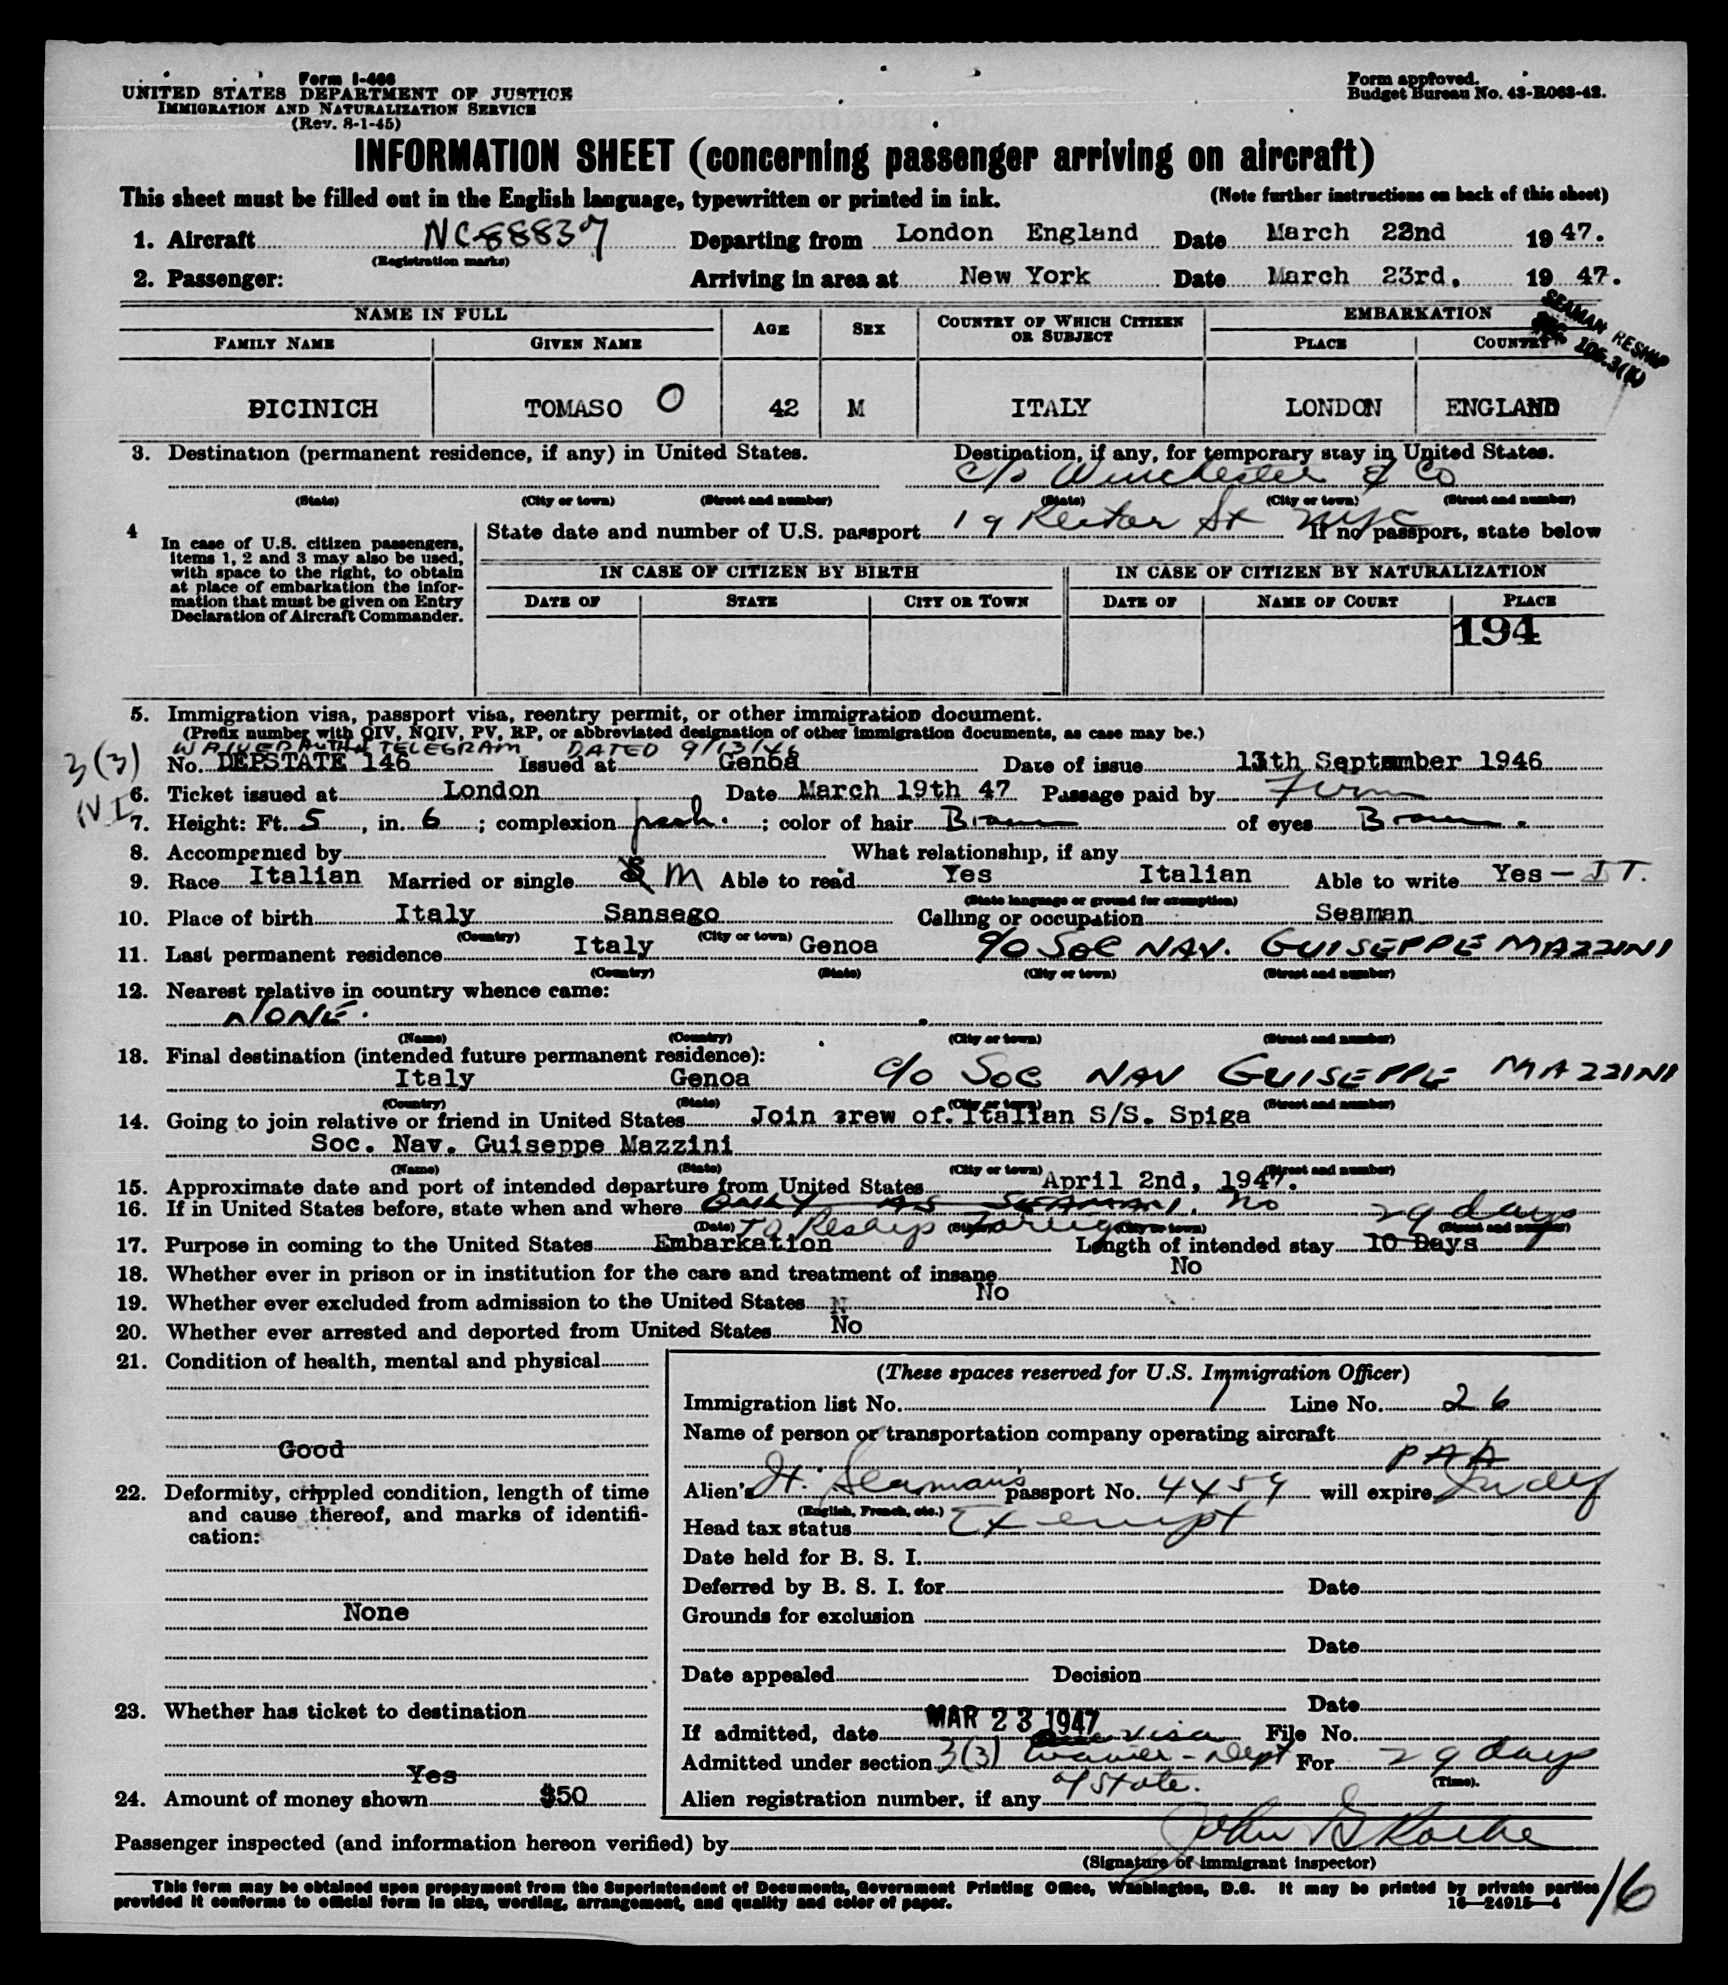 Form I-466
UNITED STATES DEPARTMENT OF JUSTICE
IMMIGRATION AND NATURALIZATION SERVICE
(Rev. 8-1-45)
Form approved.
Budget Bureau No. 43-R063-42.
INFORMATION SHEET (concerning passenger arriving on aircraft)
This sheet must be filled out in the English language, typewritten or printed in ink. (Note further instructions on back of this sheet)
1. Aircraft NC88837 Departing from London England Date March 22nd 19 47.
(Registration marks)
2. Passenger: Arriving in area at New York Date March 23rd, 19 47.
SEAMAN RESHIP
105.3(K)
NAME IN FULL AGE SEX COUNTRY OF WHICH CITIZEN OR SUBJECT EMBARKATION
FAMILY NAME GIVEN NAME PLACE COUNTRY
PICINICH TOMASO O 42 M ITALY LONDON ENGLAND
3. Destination (permanent residence, if any) in United States. Destination, if any, for temporary stay in United States.
c/o Winchester & Co
(State) (City or town) (Street and number) (State) (City or town) (Street and number)
4 In case of U.S. citizen passengers, items 1, 2 and 3 may also be used, with space to the right, to obtain at place of embarkation the information that must be given on Entry Declaration of Aircraft Commander.
State date and number of U.S. passport 19 Rector St NYC If no passport, state below
IN CASE OF CITIZEN BY BIRTH IN CASE OF CITIZEN BY NATURALIZATION
DATE OF STATE CITY OR TOWN DATE OF NAME OF COURT PLACE
194
5. Immigration visa, passport visa, reentry permit, or other immigration document.
(Prefix number with QIV, NQIV, PV, RP, or abbreviated designation of other immigration documents, as case may be.)
WAIVED AUTH TELEGRAM DATED 9/13/46
3(3) No. DEPSTATE 146 Issued at Genoa Date of issue 13th September 1946
6. Ticket issued at London Date March 19th 47 Passage paid by Firm
NI
7. Height: Ft. 5, in. 6; complexion fresh.; color of hair Brown of eyes Brown.
8. Accompanied by What relationship, if any
9. Race Italian Married or single S M Able to read Yes Italian Able to write Yes - IT.
(State language or ground for exemption)
10. Place of birth Italy Sansego Calling or occupation Seaman
(Country) (City or town)
11. Last permanent residence Italy Genoa c/o SOC NAV. GUISEPPE MAZZINI
(Country) (State) (City or town) (Street and number)
12. Nearest relative in country whence came:
NONE.
(Name) (Country) (City or town) (Street and number)
13. Final destination (intended future permanent residence):
Italy Genoa c/o SOC NAV GUISEPPE MAZZINI
(Country) (State) (City or town) (Street and number)
14. Going to join relative or friend in United States Join crew of Italian S/S. Spiga
Soc. Nav. Guiseppe Mazzini
(Name) (State) (City or town) (Street and number)
15. Approximate date and port of intended departure from United States April 2nd, 1947.
16. If in United States before, state when and where ONLY AS SEAMAN. No
(Date) (State) (City or town) (Street and number)
To Reship Foreign 29 days
17. Purpose in coming to the United States Embarkation Length of intended stay 10 Days
18. Whether ever in prison or in institution for the care and treatment of insane No
19. Whether ever excluded from admission to the United States N No
20. Whether ever arrested and deported from United States No
21. Condition of health, mental and physical
Good
22. Deformity, crippled condition, length of time and cause thereof, and marks of identification:
None
23. Whether has ticket to destination
Yes
24. Amount of money shown $50
(These spaces reserved for U.S. Immigration Officer)
Immigration list No. 1 Line No. 26
Name of person or transportation company operating aircraft
PAA
Alien's It. Seaman's passport No. 4459 will expire Indef
(English, French, etc.)
Head tax status Exempt
Date held for B. S. I.
Deferred by B. S. I. for Date
Grounds for exclusion
Date
Date appealed Decision
Date
If admitted, date MAR 23 1947 visa File No.
Admitted under section 3(3) waiver - Dept For 29 days
of State. (Time).
Alien registration number, if any
Passenger inspected (and information hereon verified) by
(Signature of immigrant inspector)
This form may be obtained upon prepayment from the Superintendent of Documents, Government Printing Office, Washington, D.C. It may be printed by private parties
provided it conforms to official form in size, wording, arrangement, and quality and color of paper. 16—24915—4
16